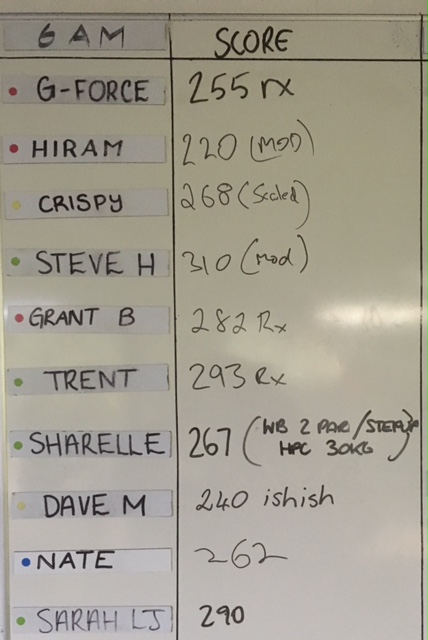 6 AM SCORE
G-FORCE 255 rx
HIRAM 220 (MOD)
CRISPY 268 (Scaled)
STEVE H 310 (Mod)
GRANT B 282 Rx
TRENT 293 Rx
SHARELLE 267 (WB 2 PAR/STEPUP
HPC 30KG)
DAVE M 240 ishish
NATE 262
SARAH LJ 290